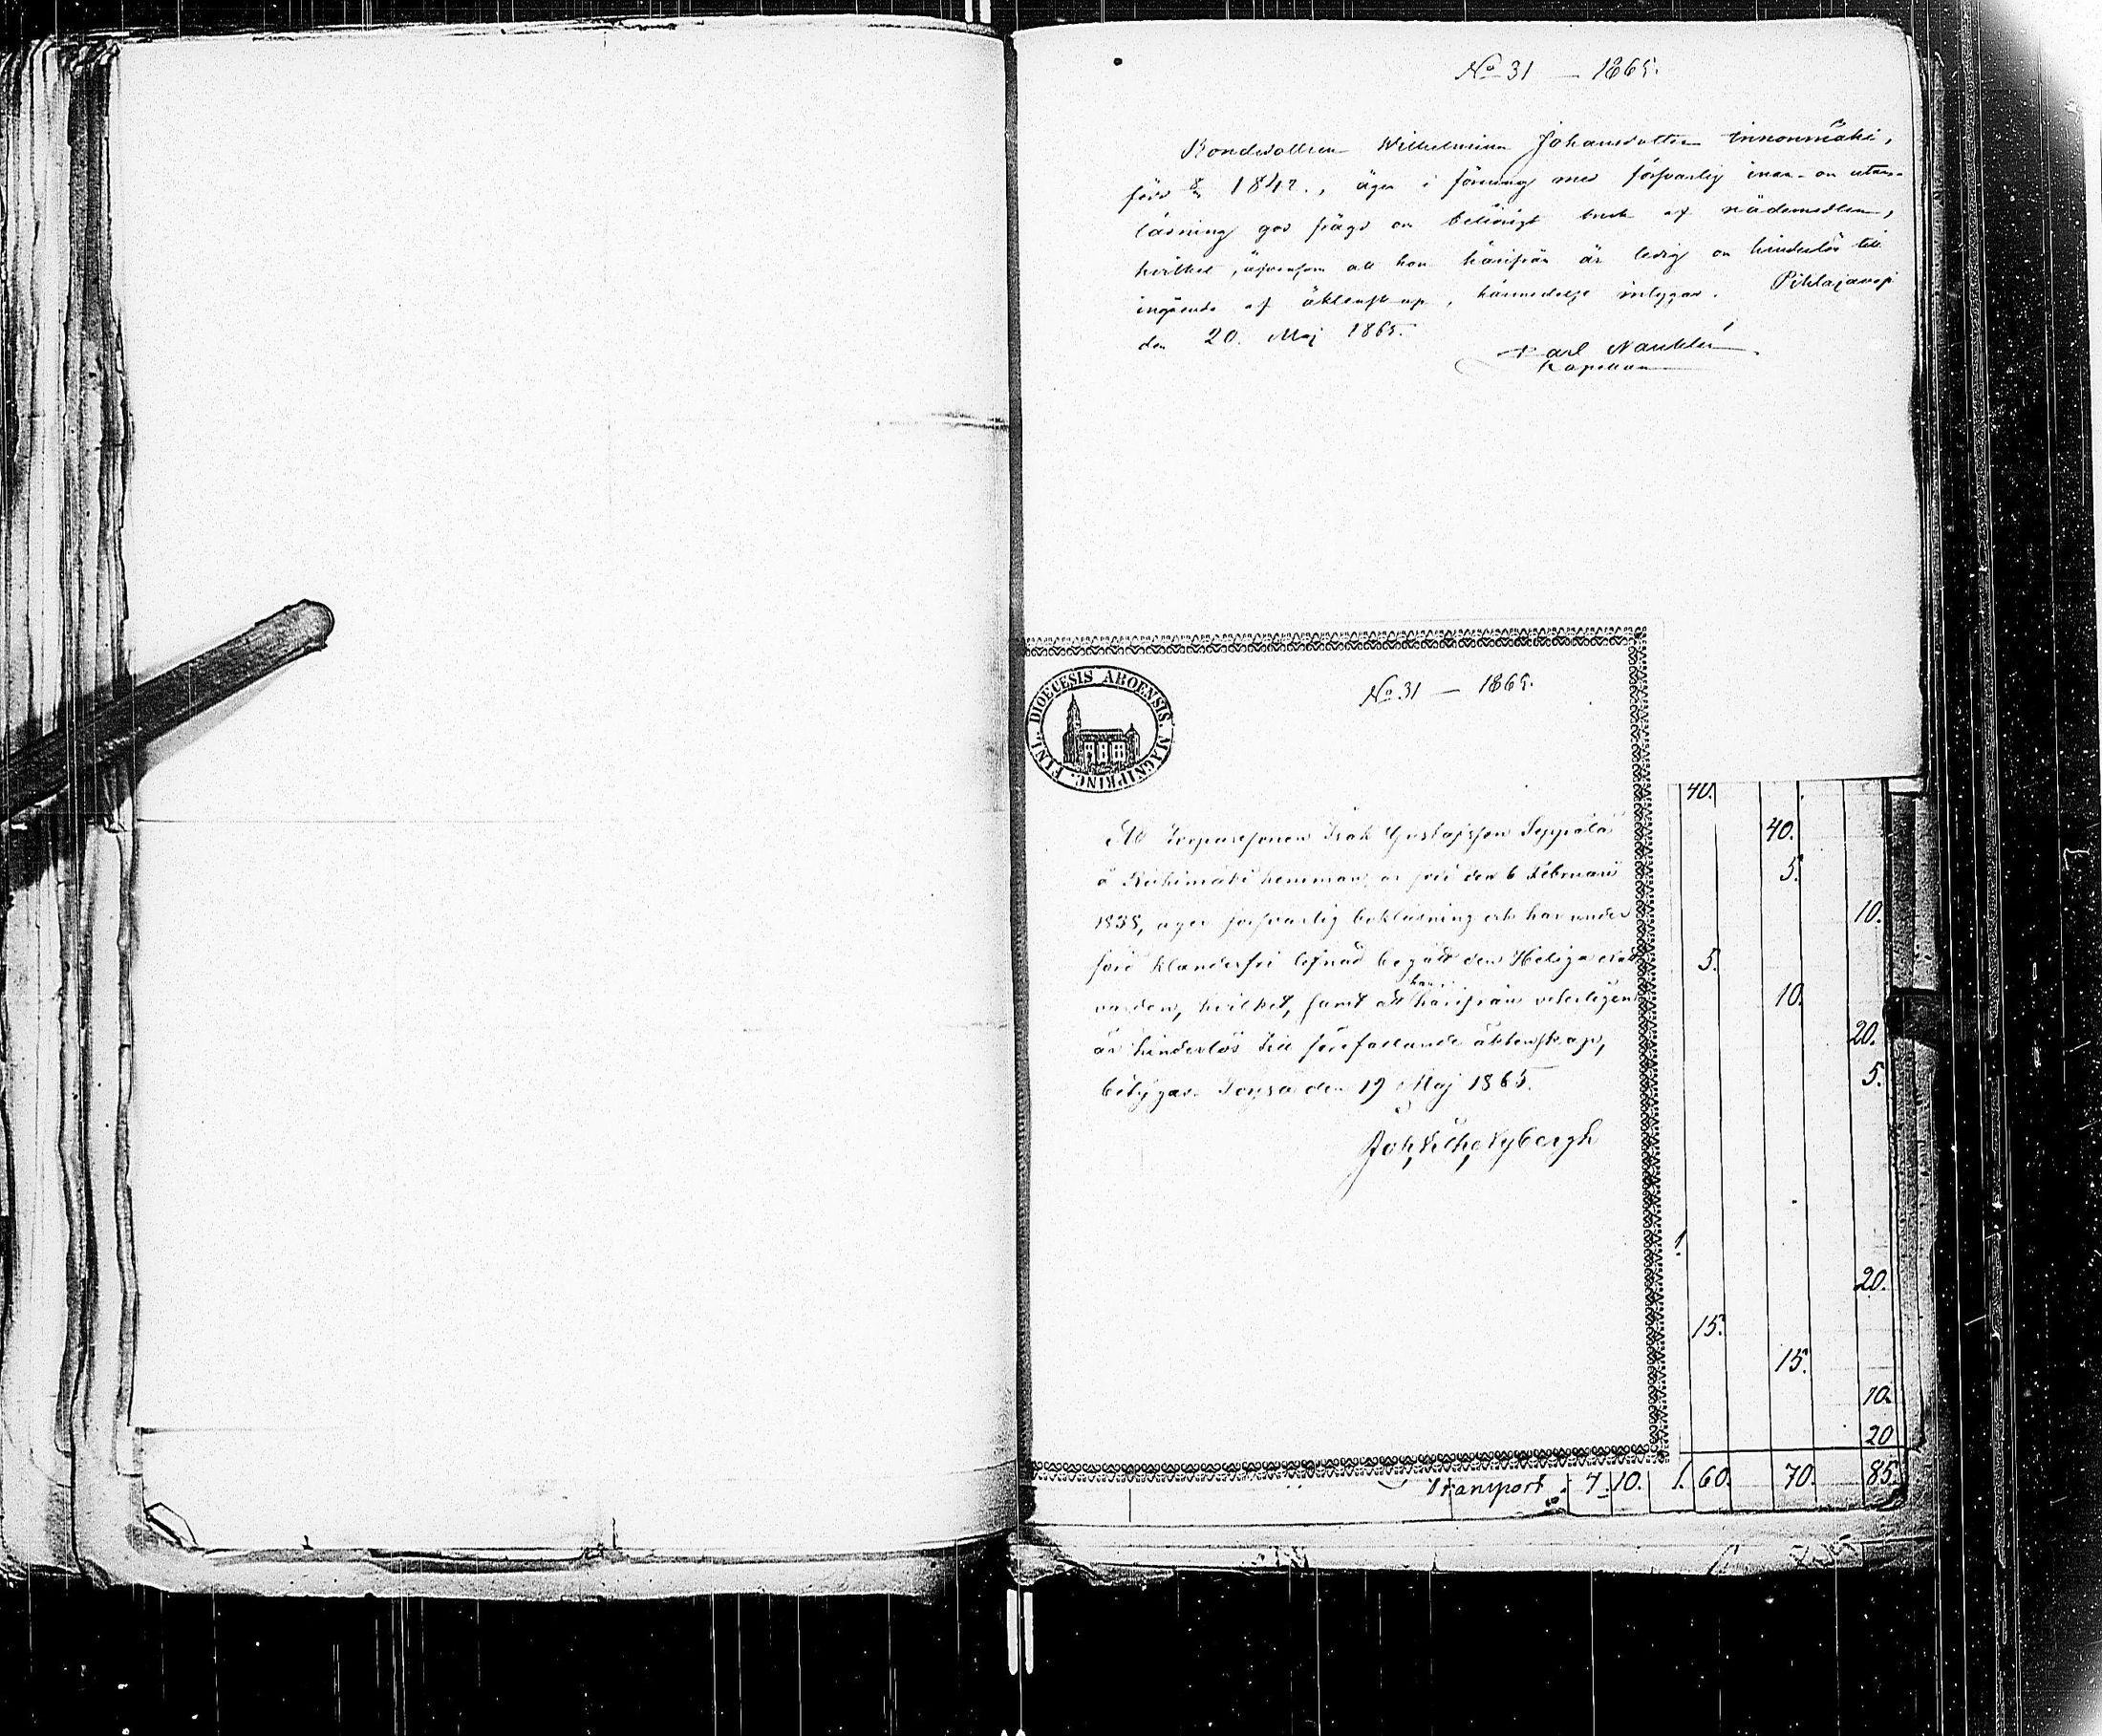 No 31 — 1865.
Bondedottren Wilhelmina Johansdotter Innonmäki,
född 1842., äger i förening med försvarlig innan- och utan-
läsning god frägd och behörigt bruk af nådemedlen,
hvilket, äfvensom att hon härifrån är ledig och hinderlös till
ingående af äktenskap, härmedelst intygas. Pihlajavesi
den 20. Maj 1865.
Karl
Kapellan
DIOECESIS ABOENSIS. MAGNI PRINC. FINL.
No 31 — 1865.
Att Torparesonen Isak Gustafsson Seppälä
å Riihimäki hemman, är född den 6 Februari
1838, äger försvarlig bokläsning och har under
förd klanderfri lefnad begått den Heliga Natt
varden, hvilket, samt att han härifrån veterligen
är hinderlös till förefallande äktenskap,
betygar. den 19 Maj 1865.
Joh. Vilh. Nybergh
40.
40.
5.
10.
5.
10.
20.
5.
1.
20.
15.
15.
10.
20
Transport. 7.10. 1.60. 70. 85.